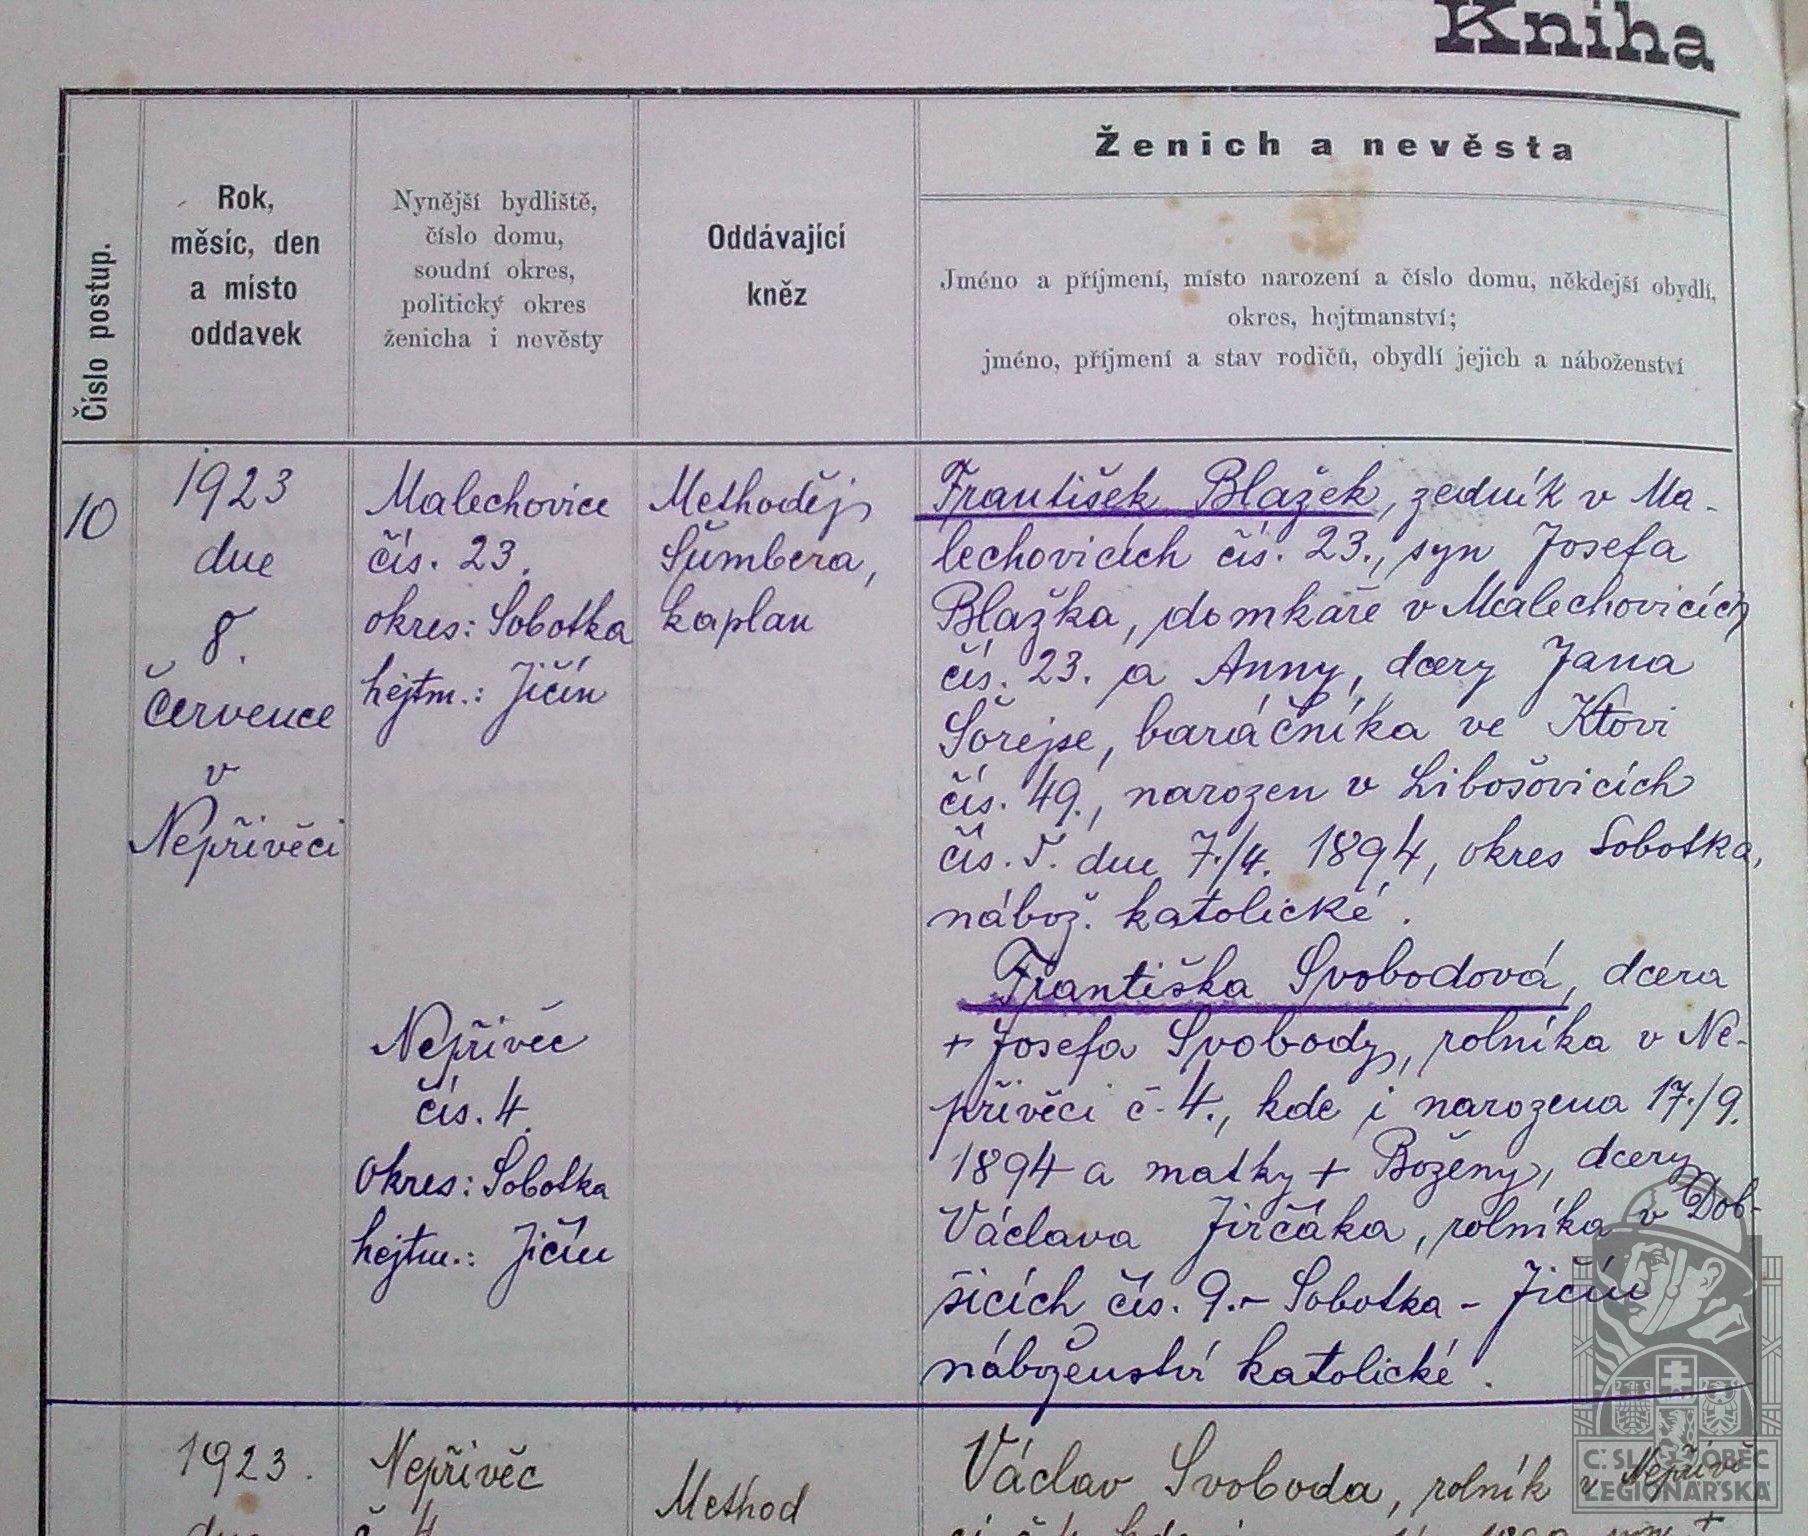 Kniha
Číslo postup.
Rok,
měsíc, den
a místo
oddavek
Nynější bydliště,
číslo domu,
soudní okres,
politický okres
ženicha i nevěsty
Oddávající
kněz
Ženich a nevěsta
Jméno a příjmení, místo narození a číslo domu, někdejší obydlí,
okres, hejtmanství;
jméno, příjmení a stav rodičů, obydlí jejich a náboženství
10
1923
dne
8.
července
v
Nepřivěci
Malechovice
čís. 23.
okres: Sobotka
hejtm.: Jičín
Nepřivěc
čís. 4.
okres: Sobotka
hejtm.: Jičín
Methoděj
Šumbera,
kaplan
František Blažek, zedník v Ma-
lechovicích čís. 23., syn Josefa
Blažka, domkáře v Malechovicích
čís. 23. a Anny, dcery Jana
Šorejse, baráčníka ve Ktovi
čís. 49., narozen v Libošovicích
čís. 5. dne 7./4. 1894, okres Sobotka,
nábož. katolické.
Františka Svobodová, dcera
+ Josefa Svobody, rolníka v Ne-
přivěci č. 4., kde i narozena 17./9.
1894 a matky + Boženy, dcery
Václava Jirčáka, rolníka v Dob-
šicích čís. 9. - Sobotka - Jičín
náboženství katolické.
1923.
dne
Nepřivěc
č. 4
Method
Václav Svoboda, rolník v Nepřivě
Č. SL. OBEC
LEGIONÁŘSKÁ